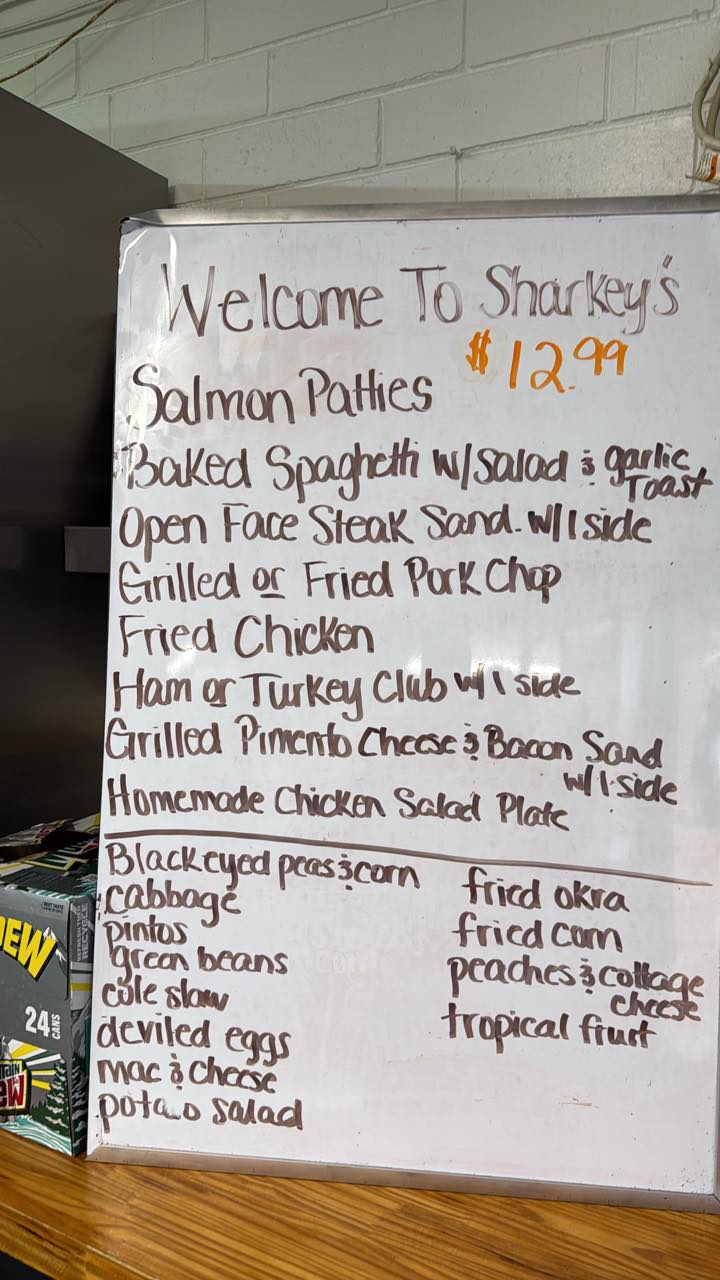 Welcome To Sharkey's
$12.99
Salmon Patties
Baked Spaghetti w/Salad & garlic
Toast
Open Face Steak Sand. w/1 side
Grilled or Fried Pork Chop
Fried Chicken
Ham or Turkey Club w/1 side
Grilled Pimento Cheese & Bacon Sand
w/1 side
Homemade Chicken Salad Plate
Blackeyed peas & corn
cabbage
pintos
green beans
cole slaw
deviled eggs
mac & cheese
potao salad
fried okra
fried corn
peaches & cottage
cheese
tropical fruit
DEW
REFRESH THE
RECYCLE
24 CANS